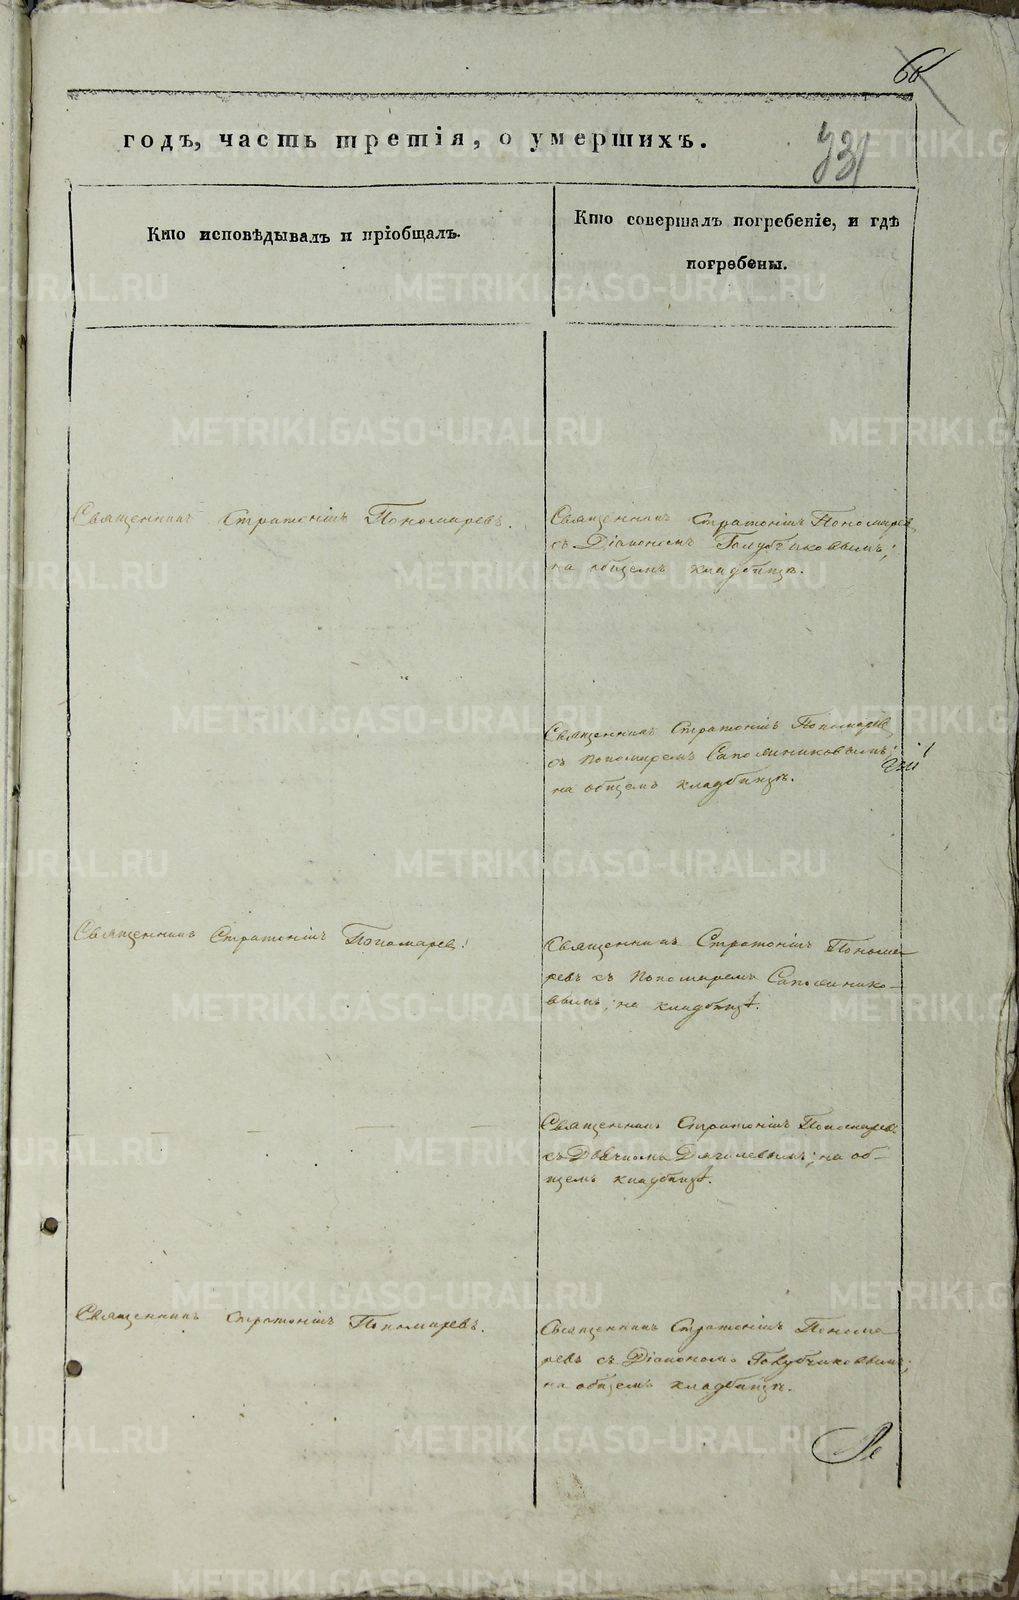 731
годъ, часть третія, о умершихъ.
Кто исповѣдывалъ и пріобщалъ.
Кто совершалъ погребеніе, и гдѣ
погребены.
Священникъ Стратонікъ Пономаревъ.
Священникъ Стратонікъ Пономаревъ
съ Діакономъ Голубчиковымъ;
на общемъ кладбищѣ.
Священникъ Стратонікъ Пономаревъ
съ Пономаремъ Сапожниковымъ;
на общемъ кладбищѣ.
Священникъ Стратонікъ Пономаревъ
Священникъ Стратонікъ Понома
ревъ съ Пономаремъ Сапожнико-
вымъ; на кладбищѣ.
Священникъ Стратонікъ Пономаревъ
съ Дьячкомъ Дягилевымъ; на об-
щемъ кладбищѣ.
Священникъ Стратонікъ Пономаревъ.
Священникъ Стратонікъ Понома
ревъ съ Діакономъ Голубчиковымъ;
на общемъ кладбищѣ.
METRIKI.GASO-URAL.RU